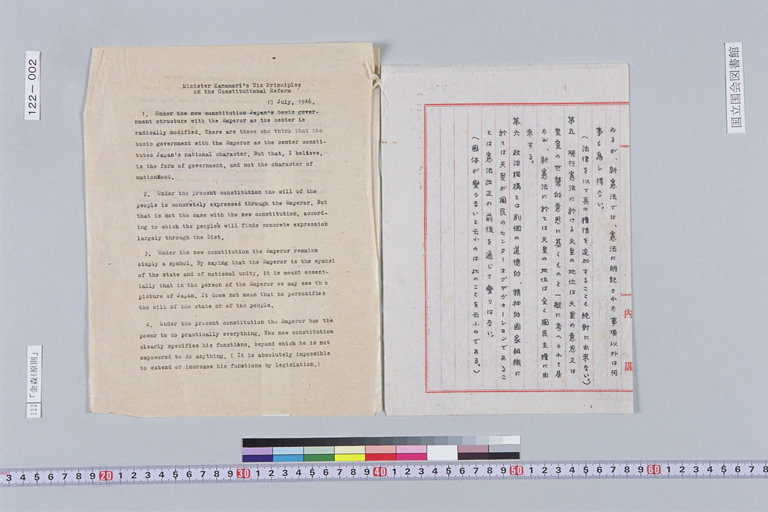 Minister Kanamori's Six Principles
on the Constitutional Reform
17 July, 1946.
1. Under the new constitution Japan's basic gover-
nment structure with the Emperor as the center is
radically modified. There are those who think that the
basic government with the Emperor as the center consti-
tutes Japan's national character. But that, I believe,
is the form of government, and not the character of
nationhood.
2. Under the present constitution the will of the
people is concretely expressed through the Emperor. But
that is not the case with the new constitution, accord-
ing to which the people's will finds concrete expression
largely through the Diet.
3. Under the new constitution the Emperor remains
simply a symbol. By saying that the Emperor is the symbol
of the state and of national unity, it is meant essent-
ially that in the person of the Emperor we may see the
picture of Japan. It does not mean that he personifies
the will of the state or of the people.
4. Under the present constitution the Emperor has the
power to do practically everything. The new constitution
clearly specifies his functions, beyond which he is not
empowered to do anything. ( It is absolutely impossible
to extend or increase his functions by legislation.)
るが、新憲法では、憲法に明記された事項以外は何
事も為し得ない。
(法律を以て其の権限を追加することも絶対に出来ない)
第五 現行憲法に於ける天皇の地位は天皇の意思又は
皇室の世襲的意思に基くものと一般に考へられて居
るが、新憲法に於ては天皇の地位は全く国民主権に由
来する。
第六 政治機構とは別個の道徳的、精神的国家組織に
於ては天皇が国民のセンター・オブ・デヴォーションであるこ
とは憲法改正の前後を通じて変りはない。
(国体が変らないと云ふのは此のことを云ふのである。)
内閣
122-002
「金森6原則」
国立国会図書館
3 4 5 6 7 8 9 20 1 2 3 4 5 6 7 8 9 30 1 2 3 4 5 6 7 8 9 40 1 2 3 4 5 6 7 8 9 50 1 2 3 4 5 6 7 8 9 60 1 2 3 4 5 6 7 8